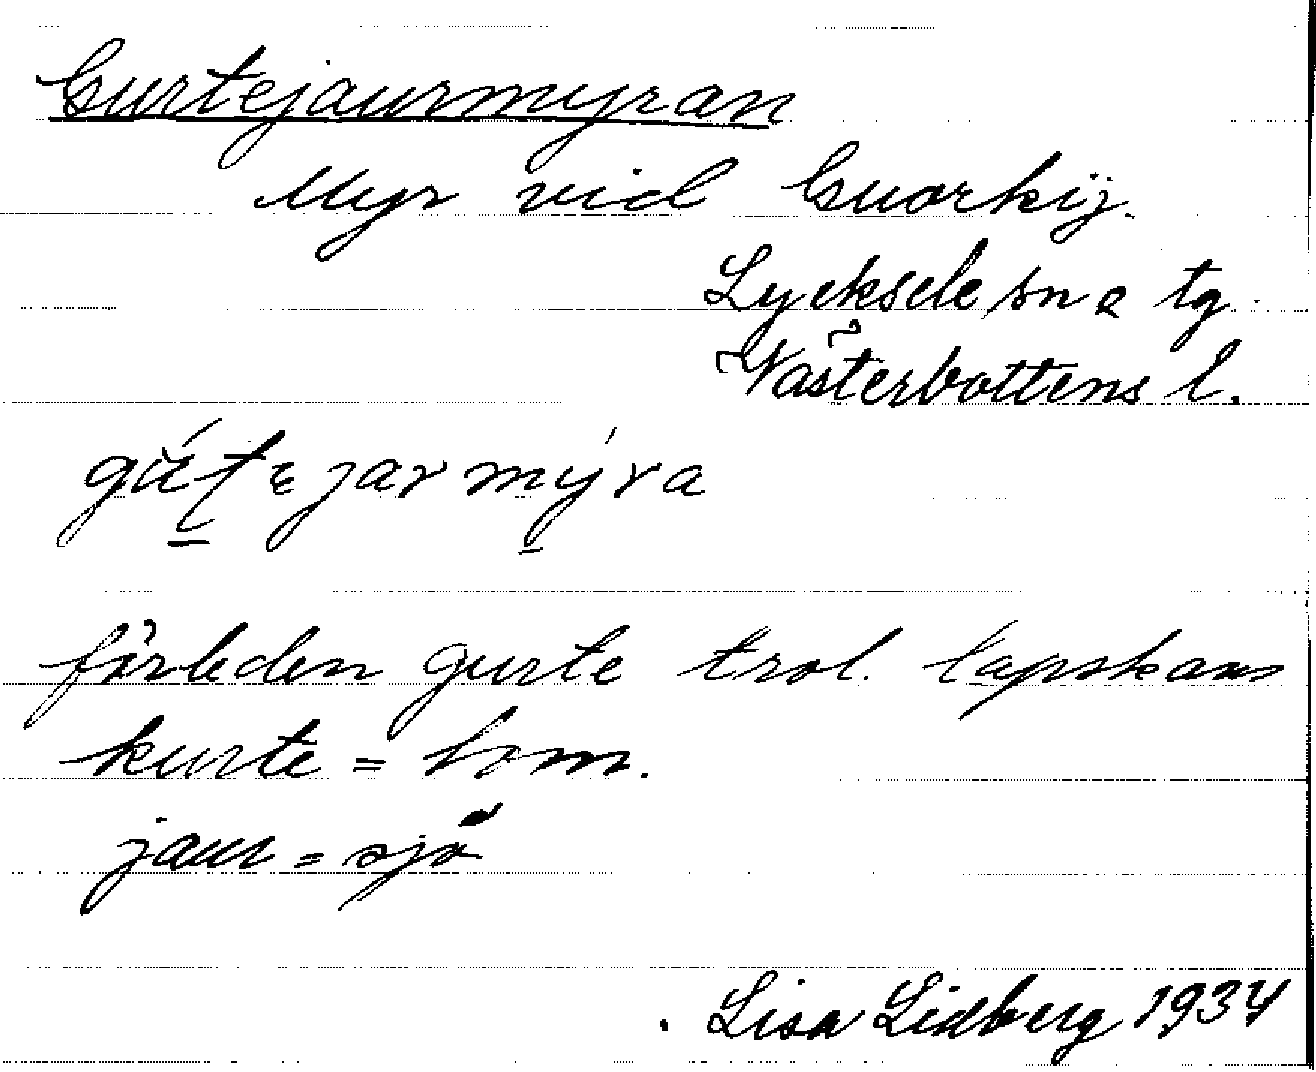 Gurtejaurmyran
Myr vid Guorkij.
Lycksele sn o tg.
Västerbottens l.
förleden gurte trol. lapskans
kurte = lom.
jaur = sjö
Lisa Lidberg 1934